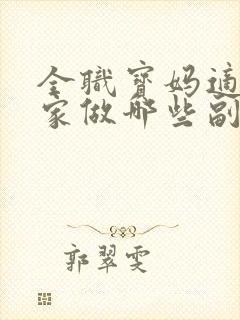 全職寶媽適
家做哪些副
郭翠雯